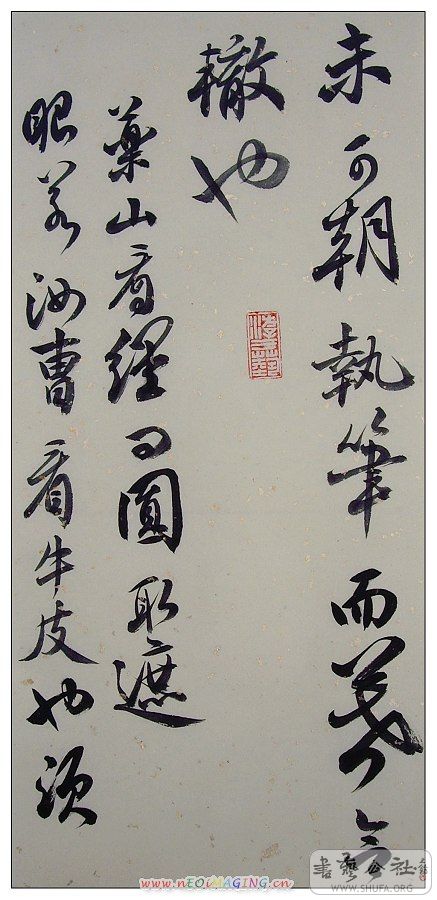 未可朝執筆而暮合
轍也
藥山看經曰圖取遮
眼若汝曹看牛皮也須
書法公社
WWW.SHUFA.ORG
www.nEOiMAGING.cn